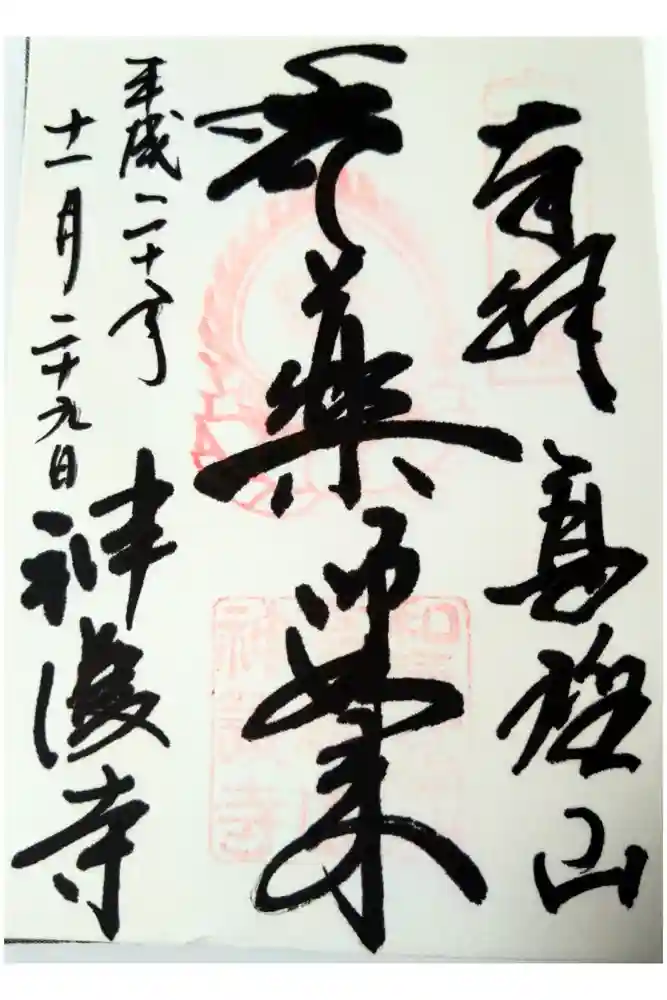 奉拝 高雄山
薬師如来
平成二十年
十一月二十九日
神護寺
神護寺